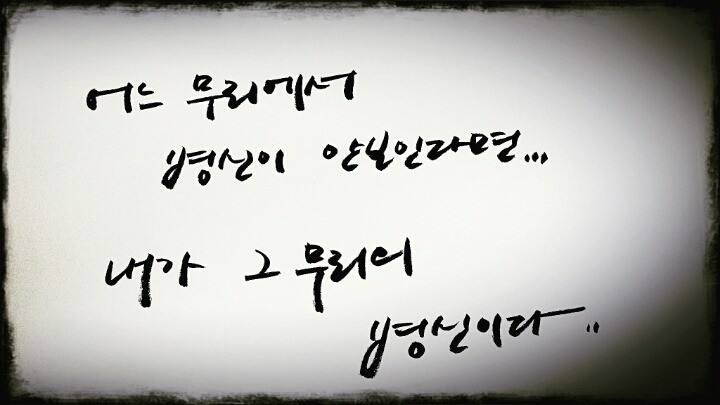 어느 무리에서
병신이 안보인다면...
내가 그 무리의
병신이다..